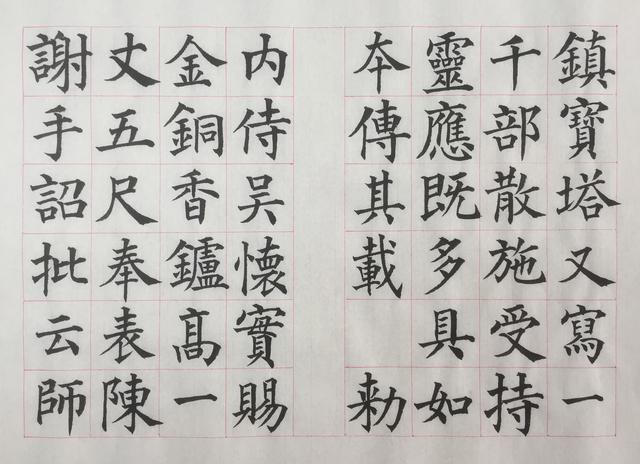 鎮寶塔又寫一
千部散施受持
靈應既多具如
夲傳其載 勑
内侍吴懷實賜
金銅香鑪髙一
丈五尺奉表陳
謝手詔批云師